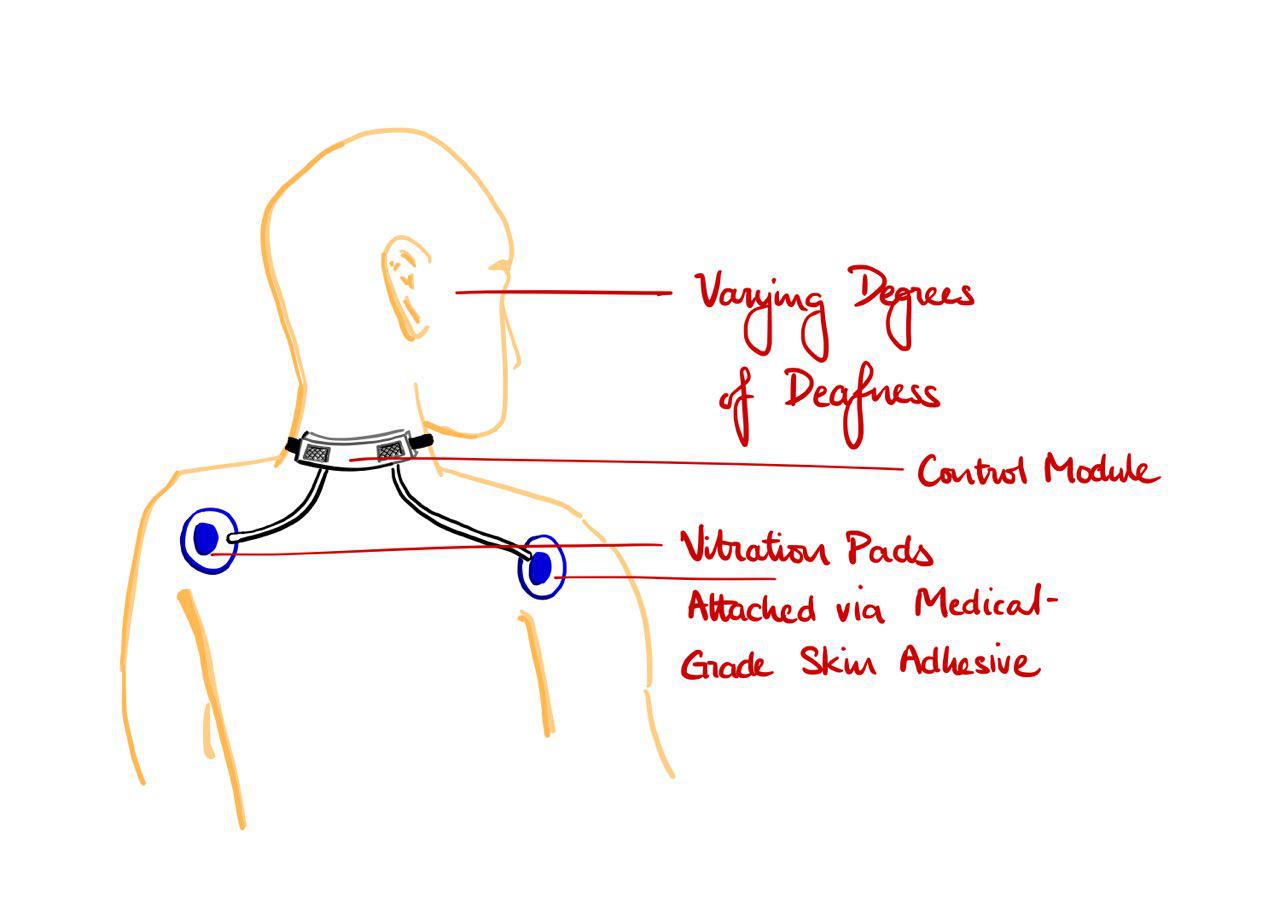 Varying Degrees
of Deafness
Control Module
Vibration Pads
Attached via Medical-
Grade Skin Adhesive